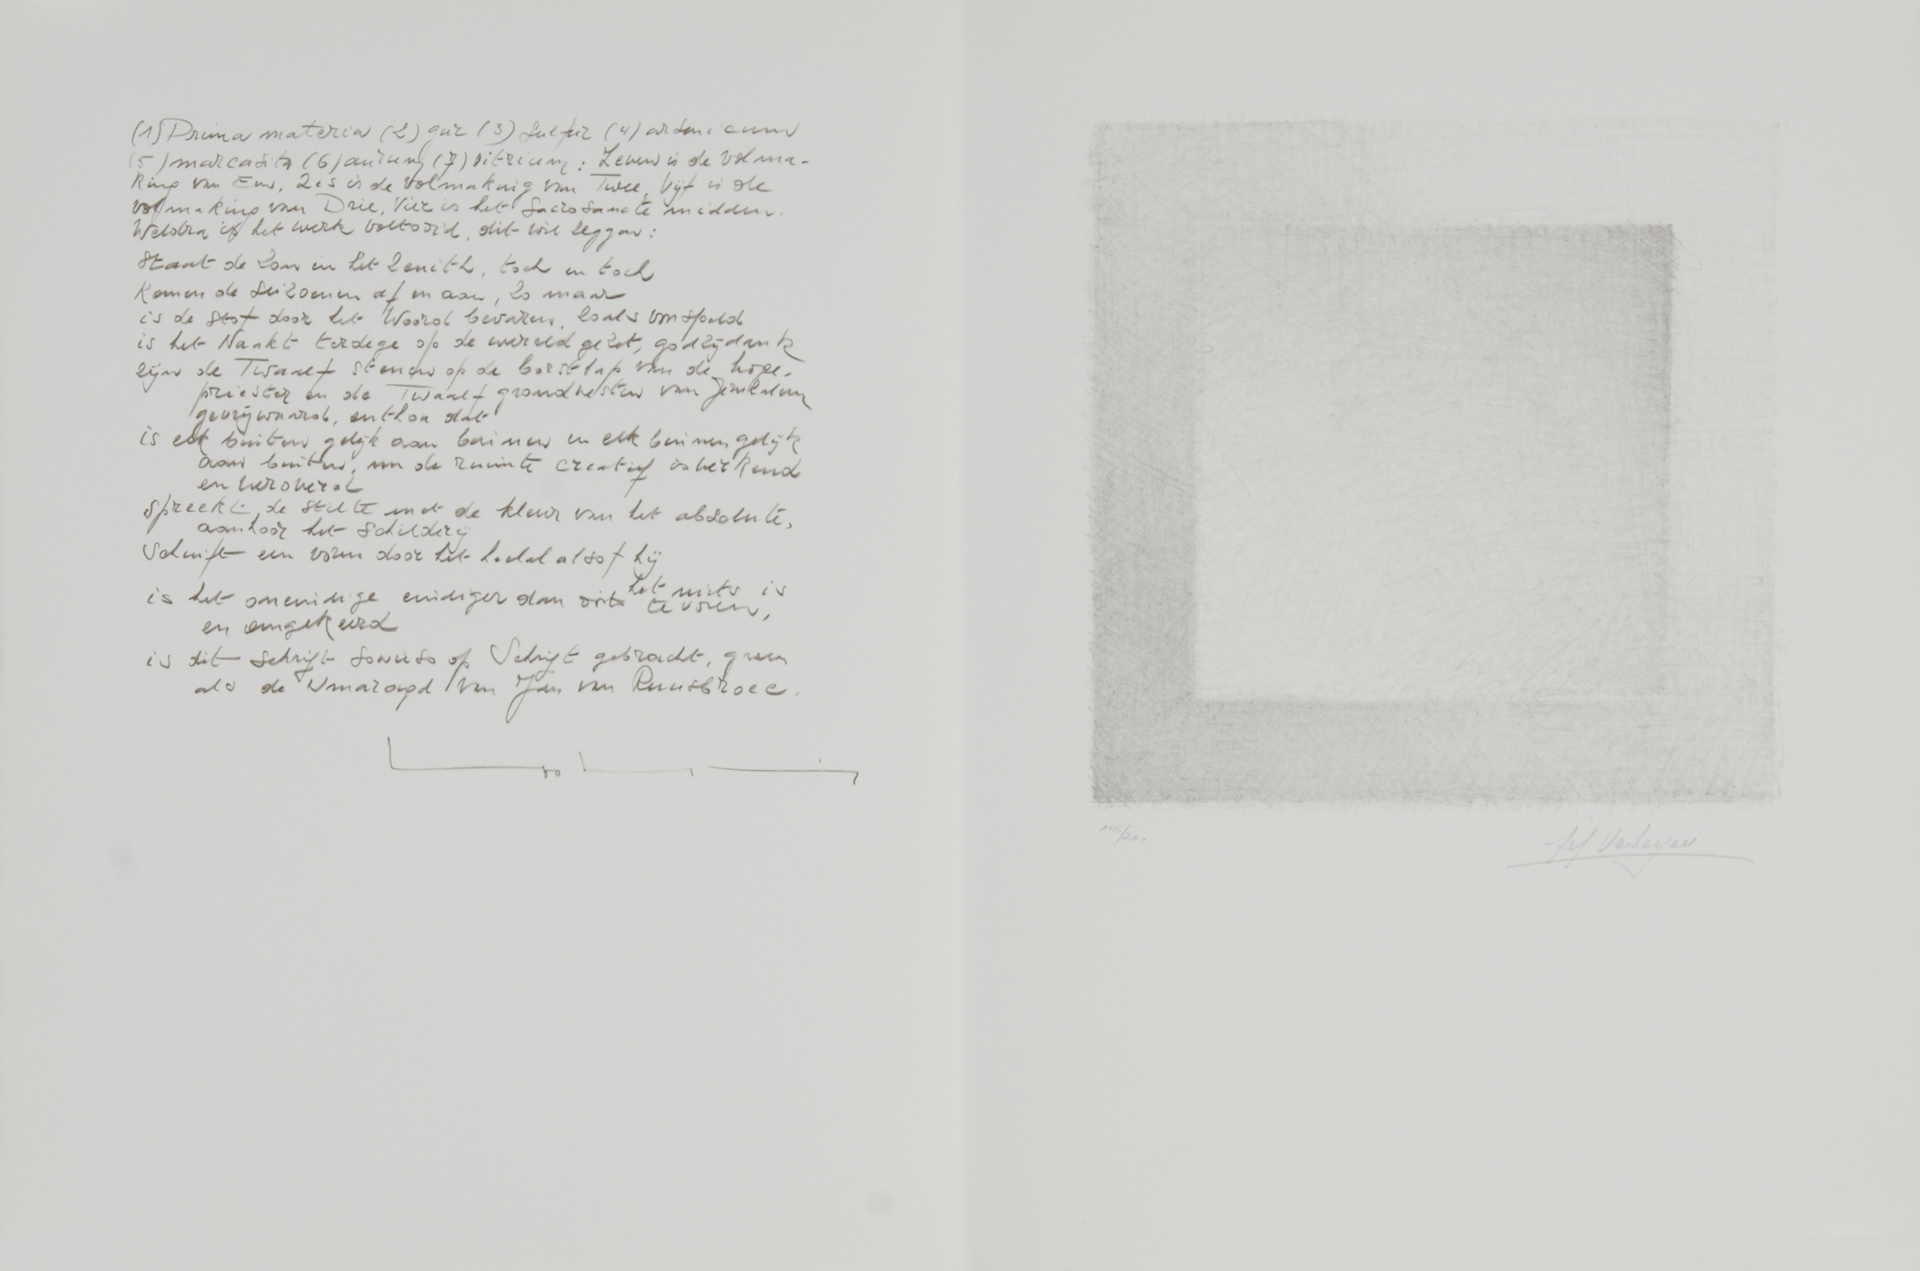 (1) Prima materia (2) gur (3) Sulfur (4) arsenicum
(5) marcasita (6) aurum (7) vitrium: Zeven is de volma-
king van Een, Zes is de volmaking van Twee, Vijf is de
volmaking van Drie, Vier is het Sacrosancte midden.
Weldra is het werk voltooid, dit wil zeggen:
Staat de Zon in het Zenith, toch en toch
Komen de Seizoenen af en aan, zo maar
is de stof door het Woord bevaren, zoals voorspeld
is het Naakt terdege op de wereld gezet, godzijdank
zijn de Twaalf stenen op de borstlap van de hoge-
priester en de Twaalf grondvesten van Jeruzalem
gevrijwaard, en dat
is elk buiten gelijk aan binnen en elk binnen gelijk
aan buiten, nu de ruimte creatief is herkend
en heroverd
spreekt de stilte met de kleur van het absolute,
aanhoor het schilderij
Schuift een vorm door het heelal alsof hij
is het oneindige eindiger dan het niets is
te voren,
en omgekeerd
is dit schrift sowieso op Schrift gebracht, groen
als de Smaragd van Jan van Ruusbroec.
105/200
Jef Verheyen